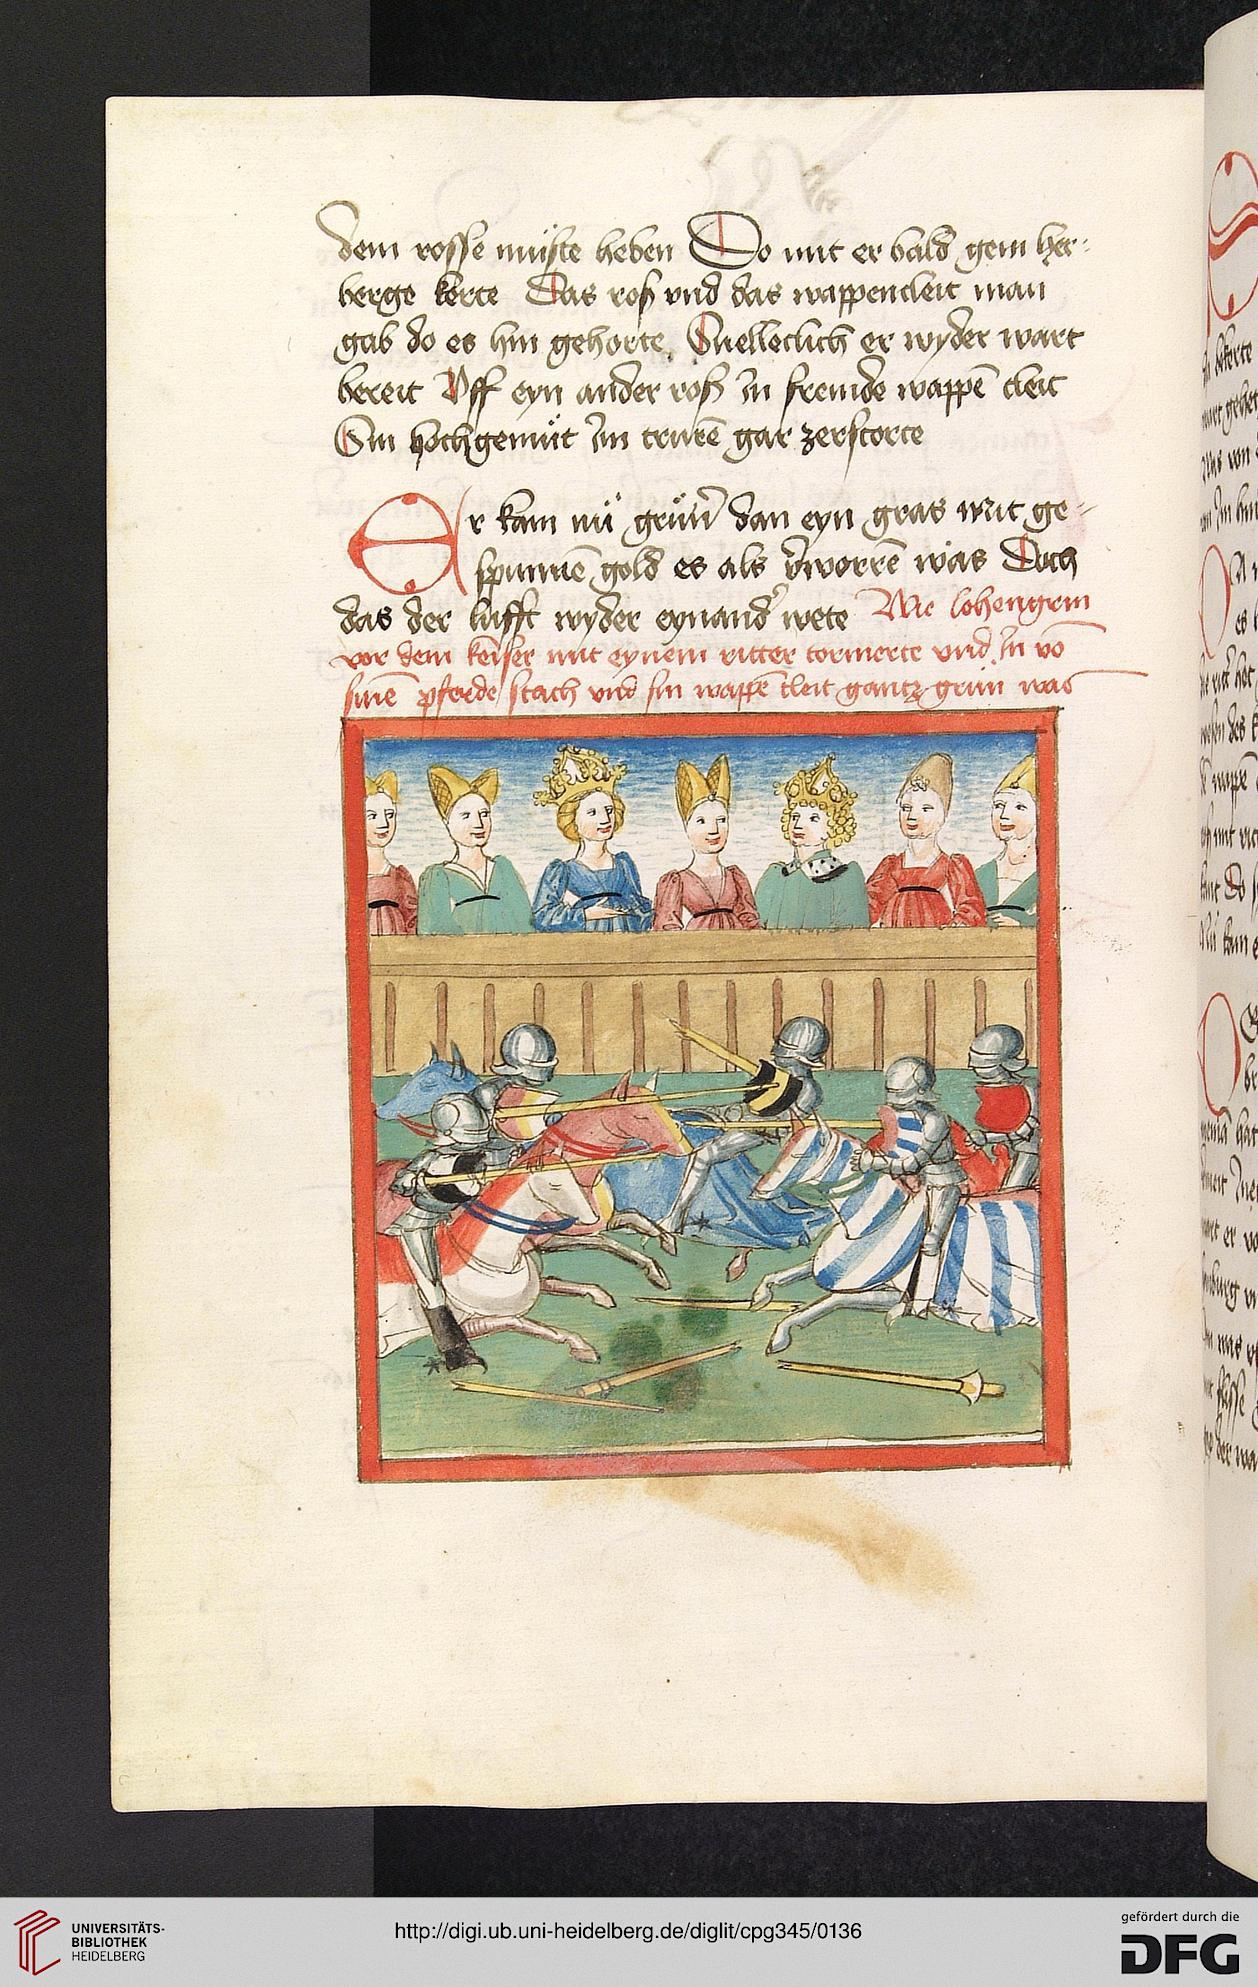 dem rosse muste heben Do mit er bald gem her-
berge kerte Das roß vnd das wappencleit man
gab do es hin gehorte. Snelleclich er wyder wart
bereit Vff eyn ander roß in fremde wappē cleit
Sin hochgemüt im trurē gar zerstorte
Er kam nü grün dan eyn gras mit ge-
spunnē gold es als v̓worrē was Doch
das der lufft wyder eynand̓ wete Wie lohengrin
vor dem keiser mit eynem ritter tornierte vnd in vō
sinē pferde stach vnd sin wappē cleit gantz grün was
UNIVERSITÄTS-
BIBLIOTHEK
HEIDELBERG
http://digi.ub.uni-heidelberg.de/diglit/cpg345/0136
gefördert durch die
DFG